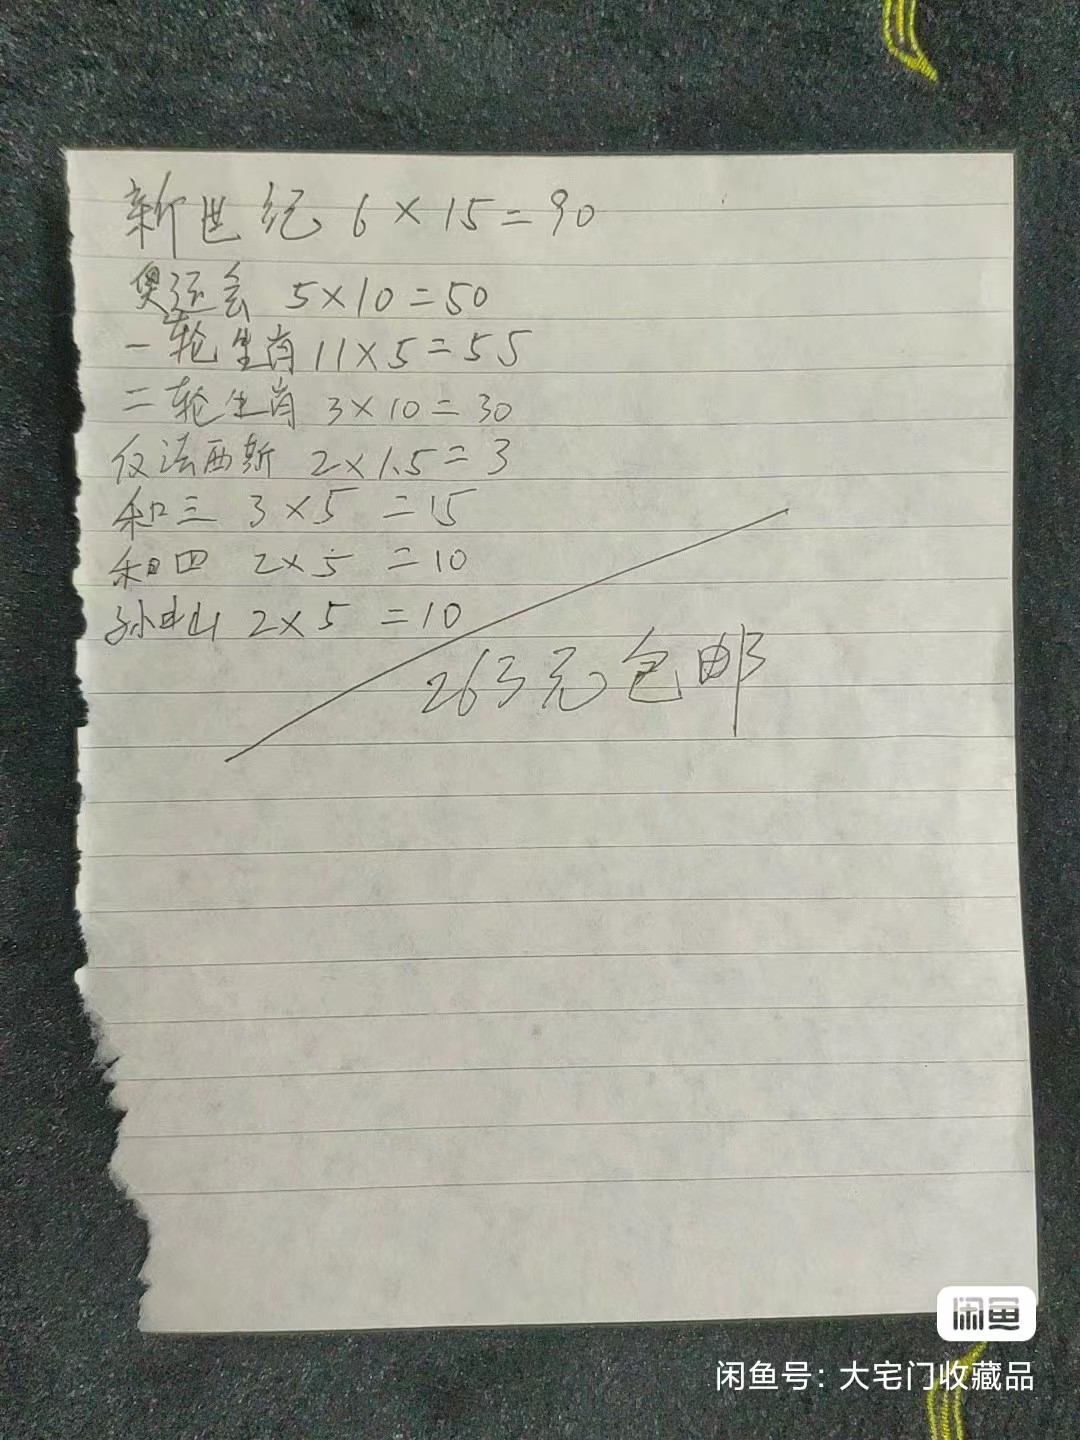 新世纪 6×15=90
奥运会 5×10=50
一轮生肖 11×5=55
二轮生肖 3×10=30
反法西斯 2×1.5=3
和三 3×5=15
和四 2×5=10
孙中山 2×5=10
263元包邮
闲鱼
闲鱼号：大宅门收藏品